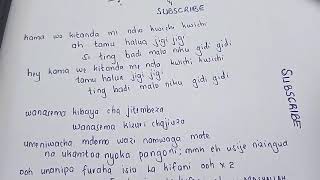 SUBSCRIBE
hama wo kitanda mi ndio kwichi kwichi
ah tamu halua jigi jigi
si ting badi malo niku gidi gidi
hey kama we kitanda mi ndo kwichi kwichi
tamu halua jigi jigi
ting badi malo niku gidi gidi
wanasema kibaya cha jitembeza
wanasema kizuri chajiuza
umeniwacha mdomo wazi namwaga mate
na ukanitoa nyoka pangoni; mmh eh usije nizingua
ooh unanipa furaha isio ka kifani ooh x 2
SUBSCRIBE